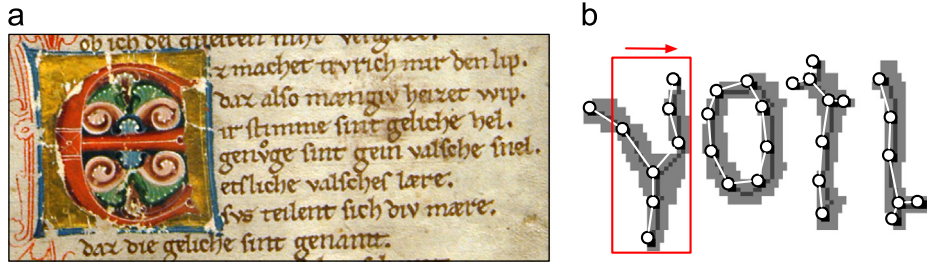 a
ob ich des
ez machet trvrich mir den lip.
daz also mængiv heizet wip.
ir stimme sint geliche hel.
genvͦge sint gein valsche snel.
etsliche valsches lære.
svs teilent sich div mære.
daz die geliche sint genamt.
b